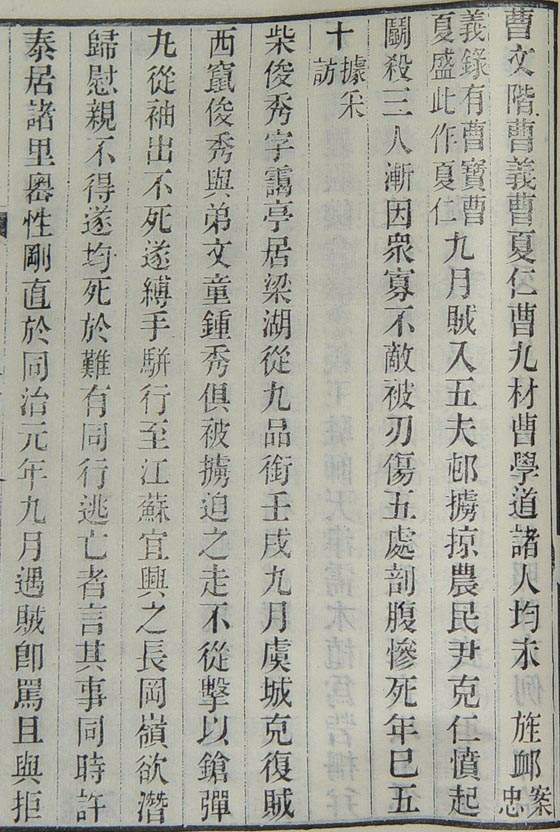 曹文階曹義曹夏仁曹九材曹學道諸人均未 旌䘏案忠
義錄有曹寶曹夏盛此作夏仁九月賊入五夫邨擄掠農民尹克仁憤起
鬬殺三人漸因衆寡不敵被刃傷五處剖腹慘死年已五
十據采訪
柴俊秀字靄亭居梁湖從九品銜壬戌九月虞城克復賊
西竄俊秀與弟文童鍾秀俱被擄迫之走不從擊以鎗彈
九從袖出不死遂縛手駢行至江蘇宜興之長岡嶺欲潛
歸慰親不得遂均死於難有同行逃亡者言其事同時許
泰居諸里嶴性剛直於同治元年九月遇賊卽罵且與拒